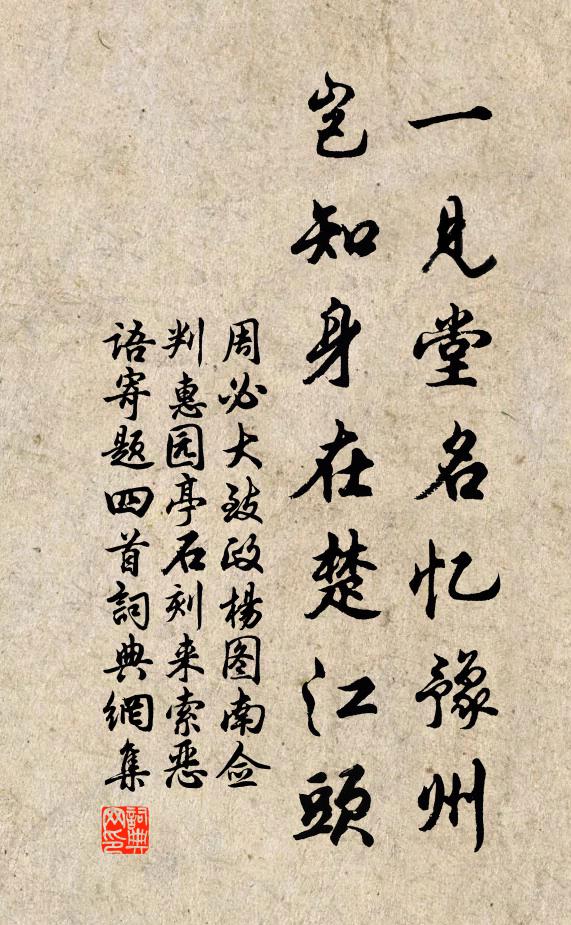 一见堂名忆豫州
岂知身在楚江頭
周必大致政楊图南佥
判惠园亭石刻来索恶
语寄题四首詞典網集
詞典网印